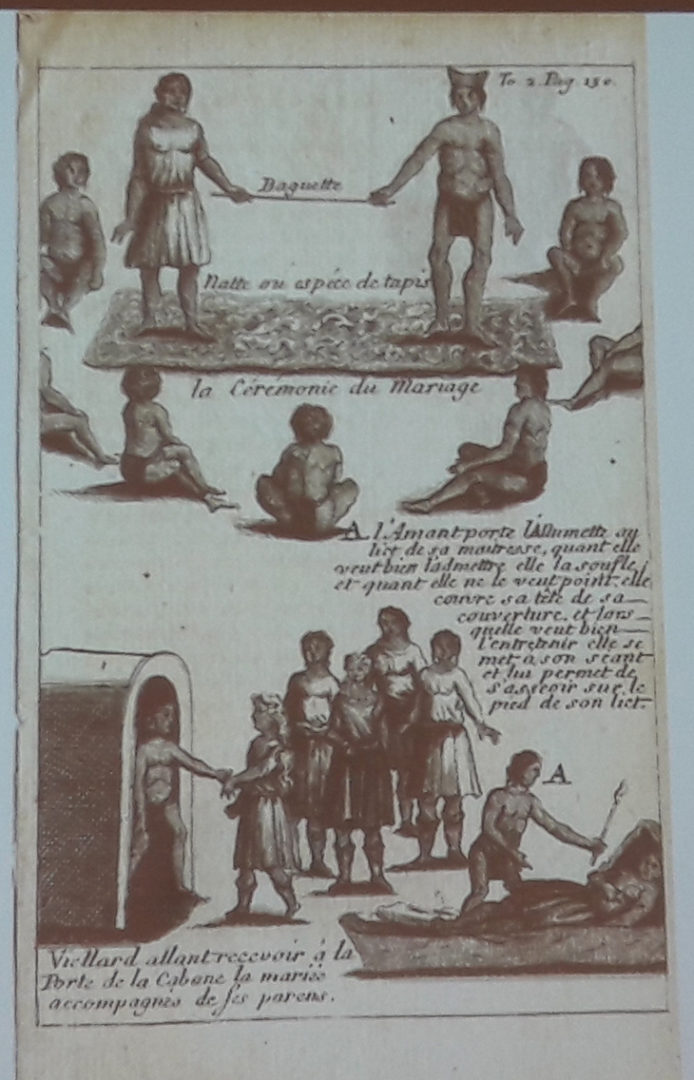 To 2. Pag 130.
Baguette
Natte ou espéce de tapis
la Cérémonie du Mariage
A l'Amant porte l'Allumette au
lict de sa maitresse, quant elle
veut bien l'admettre elle la soufle,
et quant elle ne le veut point elle
couvre sa tête de sa
couverture. et lors
quelle veut bien
l'entretenir elle se
met a son seant
et lui permet de
s'asseoir sur le
pied de son lict.
A
Viellard allant recevoir à la
Porte de la Cabane la mariée
accompagnés de ses parens.